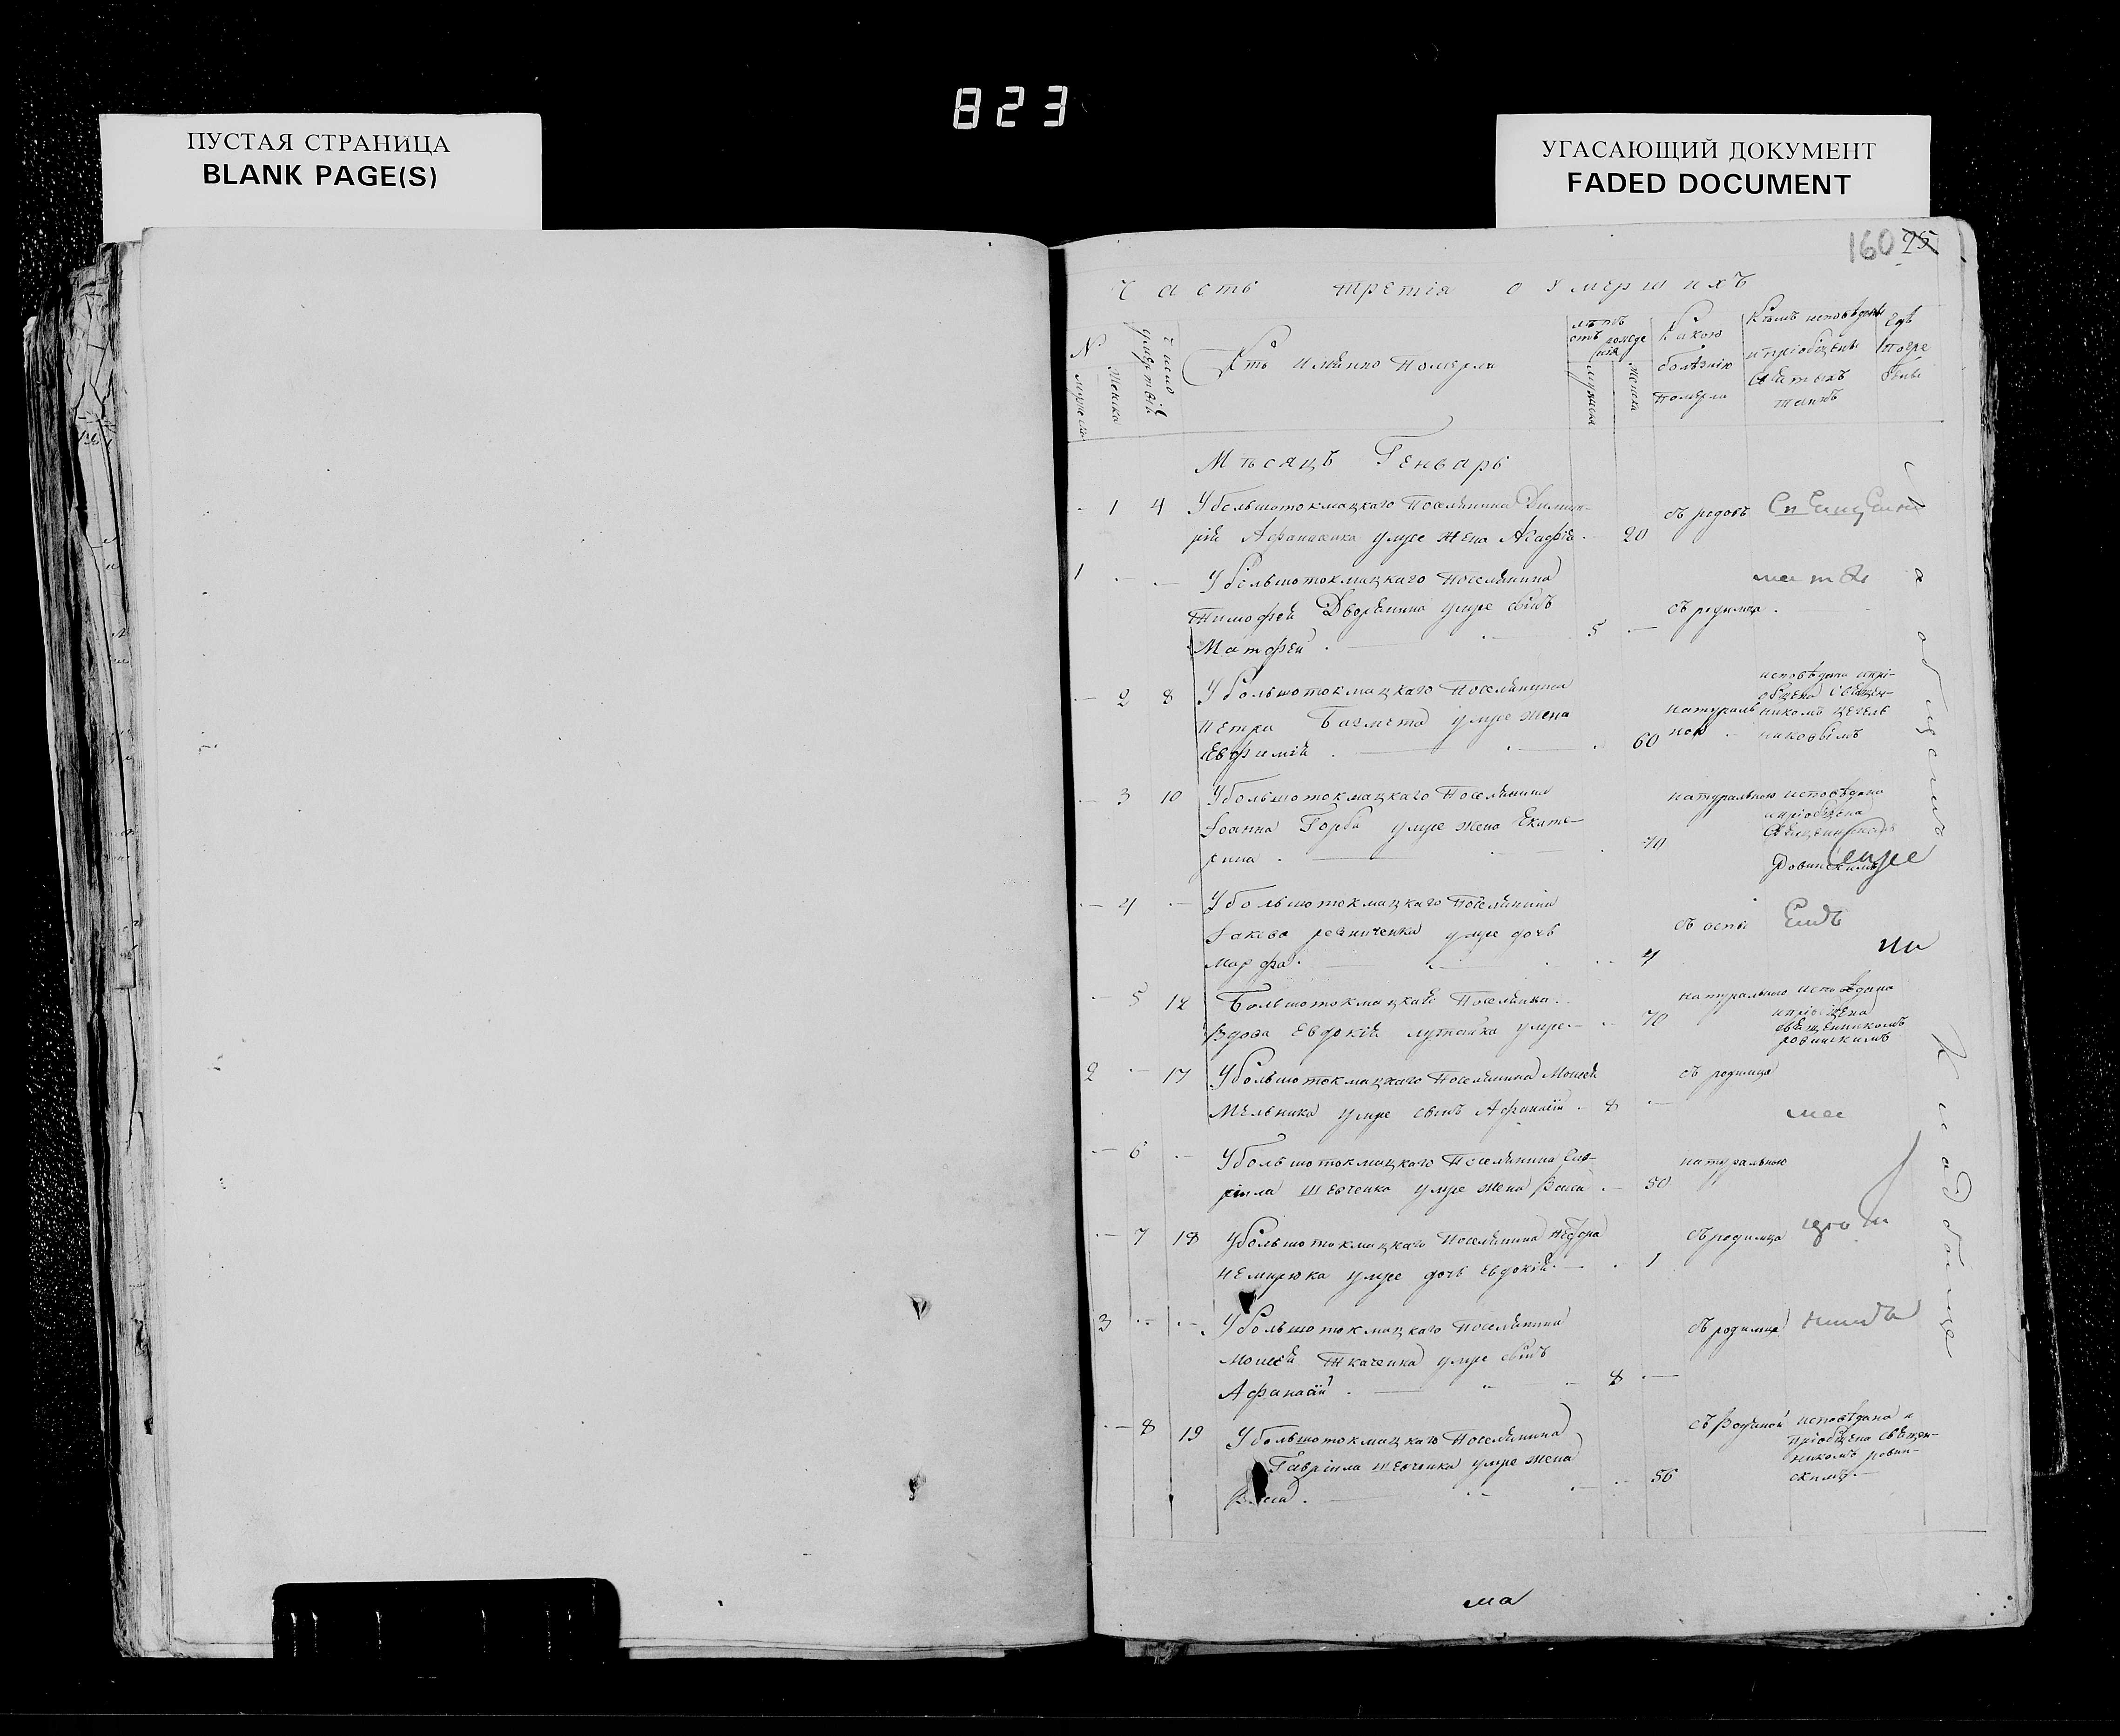 823
ПУСТАЯ СТРАНИЦА
BLANK PAGE(S)
УГАСАЮЩИЙ ДОКУМЕНТ
FADED DOCUMENT
160 95
Часть третія о умершихъ
№
мужеска
женска
Число умертвій
Кто именно померли
лѣтъ отъ рожденія
мужска
женска
Какою болѣзнію померли
Кѣмъ исповѣданы и пріобщены Святыхъ таинъ
Гдѣ погребены
Мѣсяцъ Генварь
- 1 4 У большотокмацкаго поселянина Димит-
рія Афанасика умре жена Агафія 20 съ родовъ
1 - - У большотокмацкаго поселянина
Тимофея Дворянина умре сынъ
Матфей 5 - съ родимца
- 2 8 У большотокмацкаго поселянина
Петра умре жена
Евфимія 60 натуральною
исповѣдана и прі-
общена Священ-
никомъ
- 3 10 У большотокмацкаго поселянина
Іоанна Горба умре жена Екате-
рина 70 натуральною
исповѣдана
и пріобщена
Священникомъ
Ровинскимъ
- 4 - У большотокмацкаго поселянина
Іакова умре дочь
Марфа 4 съ оспы
- 5 12 Большотокмацкая поселянка
Вдова Евдокія умре 70 натуральною
исповѣдана
и пріобщена
священникомъ
ровинскимъ
2 - 17 У большотокмацкаго поселянина Моисея
Мельника умре сынъ Афанасій 8 - съ родимца
- 6 - У большотокмацкаго поселянина Гав-
ріила Шевченка умре жена Васса 50 натуральною
- 7 18 У большотокмацкаго поселянина
Немирюка умре дочь Евдокія 1 съ родимца
3 - - У большотокмацкаго поселянина
Моисея Ткаченка умре сынъ
Афанасій 8 - съ родимца
- 8 19 У большотокмацкаго поселянина
Гавріила Шевченка умре жена
Васса 56 съ водяной
исповѣдана и
пріобщена Священ-
никомъ ровин-
скимъ
На общемъ Кладбище